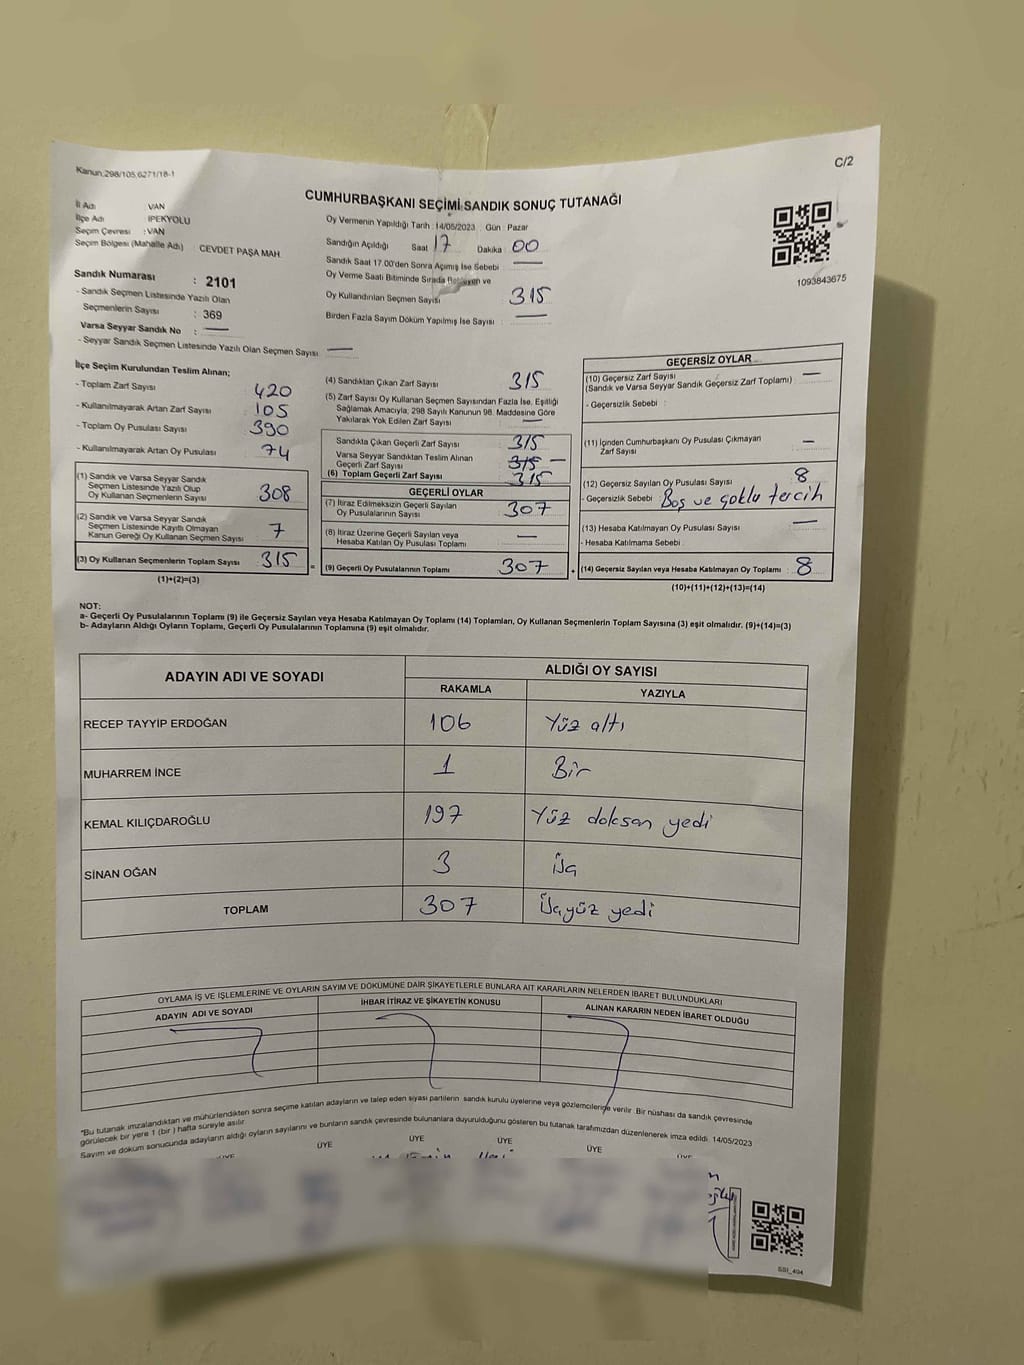 Kanun:298/105,6271/18-1
C/2
CUMHURBAŞKANI SEÇİMİ SANDIK SONUÇ TUTANAĞI
İl Adı VAN
İlçe Adı IPEKYOLU
Seçim Çevresi : VAN
Seçim Bölgesi (Mahalle Adı) : CEVDET PAŞA MAH.
Sandık Numarası : 2101
- Sandık Seçmen Listesinde Yazılı Olan
Seçmenlerin Sayısı : 369
Varsa Seyyar Sandık No : —
- Seyyar Sandık Seçmen Listesinde Yazılı Olan Seçmen Sayısı: —
Oy Vermenin Yapıldığı Tarih : 14/05/2023 Gün : Pazar
Sandığın Açıldığı Saat 17 Dakika 00
Sandık Saat 17.00'den Sonra Açımış İse Sebebi : —
Oy Verme Saati Bitiminde Sırada Bekleyen ve
Oy Kullandırılan Seçmen Sayısı 315
Birden Fazla Sayım Döküm Yapılmış İse Sayısı : —
1093843675
İlçe Seçim Kurulundan Teslim Alınan;
- Toplam Zarf Sayısı 420
- Kullanılmayarak Artan Zarf Sayısı 105
- Toplam Oy Pusulası Sayısı 390
- Kullanılmayarak Artan Oy Pusulası 74
(1) Sandık ve Varsa Seyyar Sandık
Seçmen Listesinde Yazılı Olup
Oy Kullanan Seçmenlerin Sayısı 308
(2) Sandık ve Varsa Seyyar Sandık
Seçmen Listesinde Kayıtlı Olmayan
Kanun Gereği Oy Kullanan Seçmen Sayısı 7
(3) Oy Kullanan Seçmenlerin Toplam Sayısı 315
(1)+(2)=(3)
(4) Sandıktan Çıkan Zarf Sayısı 315
(5) Zarf Sayısı Oy Kullanan Seçmen Sayısından Fazla İse, Eşitliği
Sağlamak Amacıyla; 298 Sayılı Kanunun 98. Maddesine Göre
Yakılarak Yok Edilen Zarf Sayısı : —
Sandıkta Çıkan Geçerli Zarf Sayısı 315
Varsa Seyyar Sandıktan Teslim Alınan
Geçerli Zarf Sayısı 315 —
(6) Toplam Geçerli Zarf Sayısı 315
GEÇERLİ OYLAR
(7) İtiraz Edilmeksizin Geçerli Sayılan
Oy Pusulalarının Sayısı 307
(8) İtiraz Üzerine Geçerli Sayılan veya
Hesaba Katılan Oy Pusulası Toplamı —
= (9) Geçerli Oy Pusulalarının Toplamı 307
GEÇERSİZ OYLAR
(10) Geçersiz Zarf Sayısı
(Sandık ve Varsa Seyyar Sandık Geçersiz Zarf Toplamı) : —
- Geçersizlik Sebebi :
(11) İçinden Cumhurbaşkanı Oy Pusulası Çıkmayan
Zarf Sayısı —
(12) Geçersiz Sayılan Oy Pusulası Sayısı 8
- Geçersizlik Sebebi : Boş ve çoklu tercih
(13) Hesaba Katılmayan Oy Pusulası Sayısı —
- Hesaba Katılmama Sebebi :
+ (14) Geçersiz Sayılan veya Hesaba Katılmayan Oy Toplamı : 8
(10)+(11)+(12)+(13)=(14)
NOT:
a- Geçerli Oy Pusulalarının Toplamı (9) ile Geçersiz Sayılan veya Hesaba Katılmayan Oy Toplamı (14) Toplamları, Oy Kullanan Seçmenlerin Toplam Sayısına (3) eşit olmalıdır. (9)+(14)=(3)
b- Adayların Aldığı Oyların Toplamı, Geçerli Oy Pusulalarının Toplamına (9) eşit olmalıdır.
ADAYIN ADI VE SOYADI ALDIĞI OY SAYISI
RAKAMLA YAZIYLA
RECEP TAYYIP ERDOĞAN 106 Yüz altı
MUHARREM İNCE 1 Bir
KEMAL KILIÇDAROĞLU 197 Yüz doksan yedi
SİNAN OĞAN 3 Üç
TOPLAM 307 Üçyüz yedi
OYLAMA İŞ VE İŞLEMLERİNE VE OYLARIN SAYIM VE DÖKÜMÜNE DAİR ŞİKAYETLERLE BUNLARA AİT KARARLARIN NELERDEN İBARET BULUNDUKLARI
ADAYIN ADI VE SOYADI İHBAR İTİRAZ VE ŞİKAYETİN KONUSU ALINAN KARARIN NEDEN İBARET OLDUĞU
"Bu tutanak imzalandıktan ve mühürlendikten sonra seçime katılan adayların ve talep eden siyasi partilerin sandık kurulu üyelerine veya gözlemcilerine verilir. Bir nüshası da sandık çevresinde
görülecek bir yere 1 (bir) hafta süreyle asılır.
Sayım ve döküm sonucunda adayların aldığı oyların sayılarını ve bunların sandık çevresinde bulunanlara duyurulduğunu gösteren bu tutanak tarafımızdan düzenlenerek imza edildi. 14/05/2023
ÜYE ÜYE ÜYE ÜYE ÜYE ÜYE
SSI_494